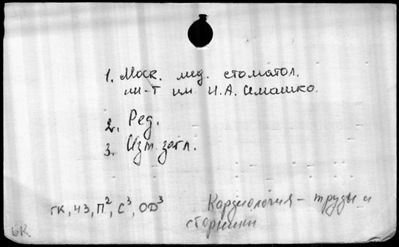 1. Моск. мед. стоматол.
ин-т им Н.А. Семашко.
2. Ред.
3. Изм. загл.
ГК, ЧЗ, П², С³, ОФ³
Кардиология – труды и
сборники
БК